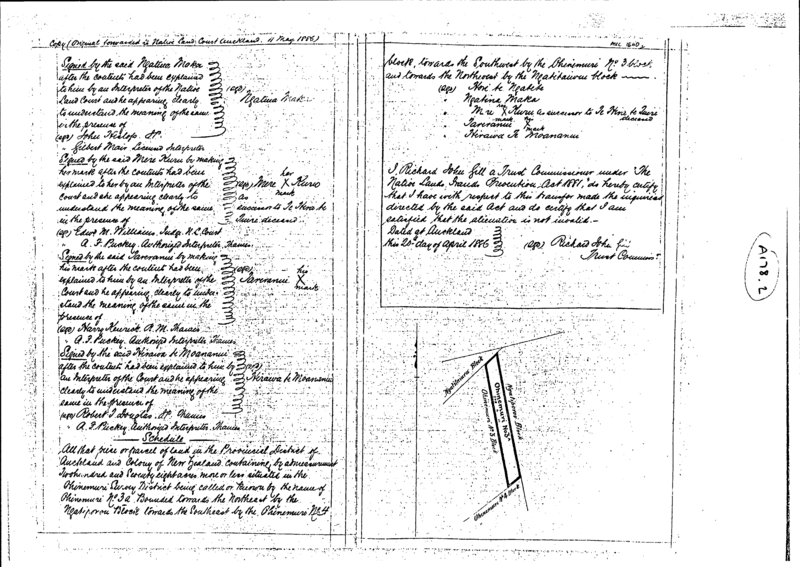 Copy (Original forwarded to Native Land Court Auckland. 11 May 1886)
Signed by the said Ngatina Maka
after the contents had been explained
to him by an Interpreter of the Native
Land Court and he appearing clearly
to understand the meaning of the same
in the presence of
(sgd)
Ngatina Maka
(sgd) John Hislop. JP.
" Gilbert Mair Licensed Interpreter
Signed by the said Mere Kuru by making
her mark after the contents had been
explained to her by an Interpreter of the
Court and she appearing clearly to
understand the meaning of the same
in the presence of
(sgd) Mere X Kuru
her
mark
as
successor to Te Hira te
Tuire deceased
(sgd) Edwd. M. Williams. Judge. N.L. Court
A. J. Puckey. Authorized Interpreter. Thames
Signed by the said Taveranui by making
his mark after the contents had been
explained to him by an Interpreter of the
Court and he appearing clearly to under-
stand the meaning of the same in the
presence of
(sgd)
Taveranui X
his
mark
(sgd) Harry Kenrick R.M. Thames
" A. J. Puckey. Authorized Interpreter. Thames
Signed by the said Hirawa te Moananui
after the contents had been explained to him by
an Interpreter of the Court and he appearing
clearly to understand the meaning of the
same in the presence of
(sgd)
Hirawa te Moananui
(sgd) Robert J Douglas. JP. Thames
" A. J. Puckey. Authorized Interpreter. Thames
Schedule
All that piece or parcel of land in the Provincial District of
Auckland and Colony of New Zealand containing by admeasurement
Two hundred and Seventy eight acres more or less situated in the
Ohinemuri Survey District being called or known by the name of
Ohinemuri No 3a Bounded towards the Northeast by the
Block towards the Southeast by the Ohinemuri No 4
block, towards the Southwest by the Ohinemuri No 3 block
and towards the Northwest by the block
(sgd)
" Ngatina Maka
" Mere X Kuru as successor to Te Hira te Tuire
mark
deceased
" Taveranui X
mark
" Hirawa Te Moananui
I, Richard John Gill a Trust Commissioner under "The
Native Lands Frauds Prevention Act 1881, do hereby certify
that I have with respect to this transfer made the inquiries
directed by the said Act and do certify that I am
satisfied that the alienation is not invalid.—
Dated at Auckland
this 20th day of April 1886
(sgd) Richard John Gill
Trust Commr.
A178.2
Block
Block
Ohinemuri No 3a
Ohinemuri No 3 Block
Ohinemuri No 4 Block